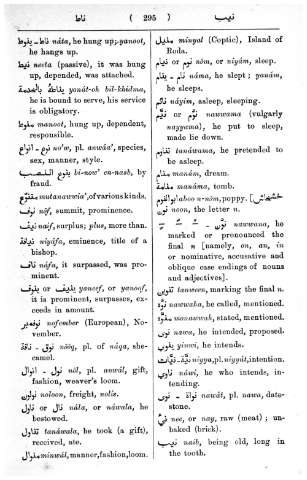 ناط ( 295 ) نيب
ناط - ينوط nāta, he hung up; yanoot,
he hangs up.
نيط neeta (passive), it was hung
up, depended, was attached.
yanāt-oh bil-khidma,
he is bound to serve, his service
is obligatory.
منوط manoot, hung up, dependent,
responsible.
نوع - انواع no'w, pl. anwāa', species,
sex, manner, style.
بنوع النصب bi-now' en-nasb, by
fraud.
متنوع mutanawwia', of various kinds.
نوف nōf, summit, prominence.
نيف naif, surplus; plus, more than.
نيافة niyāfa, eminence, title of a
bishop.
ناف nāfa, it surpassed, was pro-
minent.
ينوف or يوف yanoof, or yanoof,
it is prominent, surpasses, ex-
ceeds in amount.
نوفمبر nofember (European), No-
vember.
نوق - ناقة nōoq, pl. of nāqa, she-
camel.
نول - انوال nōl, pl. anwāl, gift,
fashion, weaver's loom.
نولون noloon, freight, nolis.
نال or ناول nāla, or nāwala, he
bestowed.
تناول tanāwala, he took (a gift),
received, ate.
منوال minwāl, manner, fashion, loom.
منيل minyal (Coptic), Island of
Roda.
نوم or نيام nōm, or niyām, sleep.
نام - ينام nāma, he slept; yanām,
he sleeps.
نائم nāyim, asleep, sleeping.
نوم or نيم nawwama (vulgarly
nayyama), he put to sleep,
made lie down.
تناوم tanāwama, he pretended to
be asleep.
منام manām, dream.
منامة manāma, tomb.
ابو النوم aboo n-nōm, poppy. [خشخاش
نون noon, the letter n.
نون nawwana, he
marked or pronounced the
final n [namely, on, an, in
or nominative, accusative and
oblique case endings of nouns
and adjectives].
تنوين tanween, marking the final n.
نوه nawwaha, he called, mentioned.
منوه manawwah, stated, mentioned.
نوى nawa, he intended, proposed.
ينوي yinwi, he intends.
نية - نيات niyya, pl. niyyāt, intention.
ناوي nāwi, he who intends, in-
tending.
نواة - نوى nawāt, pl. nawa, date-
stone.
ني nee, or nay, raw (meat); un-
baked (brick).
نيب naib, being old, long in
the tooth.